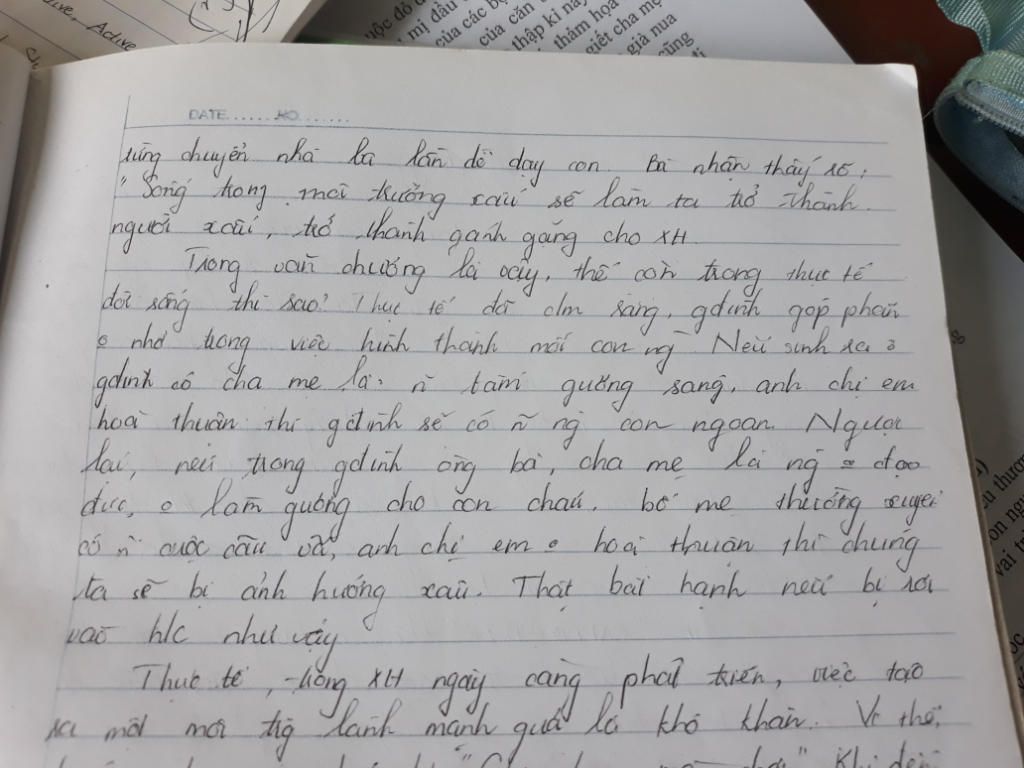 Active, Active
uộc đỗ đ
mị đầu
của các bộ
của căn
thập kỉ này
thảm họa
giết cha mẹ
già nua
cũng
DATE......NO.......
từng chuyển nhà ba lần để dạy con. Bà nhận thấy rõ:
"Sống trong môi trường xấu sẽ làm ta trở thành
người xấu, trở thành gánh gặng cho XH.
Trong văn chương là vậy, thế còn trong thực tế
đời sống thì sao? Thực tế đã cm rằng, gđình góp phần
o nhỏ trong việc hình thành mỗi con ng. Nếu sinh ra ở
gđình có cha mẹ là n tấm gương sáng, anh chị em
hoà thuận thì gđình sẽ có n ng con ngoan. Ngược
lại, nếu trong gđình ông bà, cha mẹ là ng o đạo
đức, o làm gương cho con cháu, bố mẹ thường xuyên
có n cuộc cãi vã, anh chị em o hoà thuận thì chúng
ta sẽ bị ảnh hưởng xấu. Thật bất hạnh nếu bị rơi
vào h/c như vậy
Thực tế, trong XH ngày càng phát triển, việc tạo
ra một môi trg lành mạnh quả là khó khăn. Vì thế,
Khi đến
ểu thươn
on ngu
vai tr